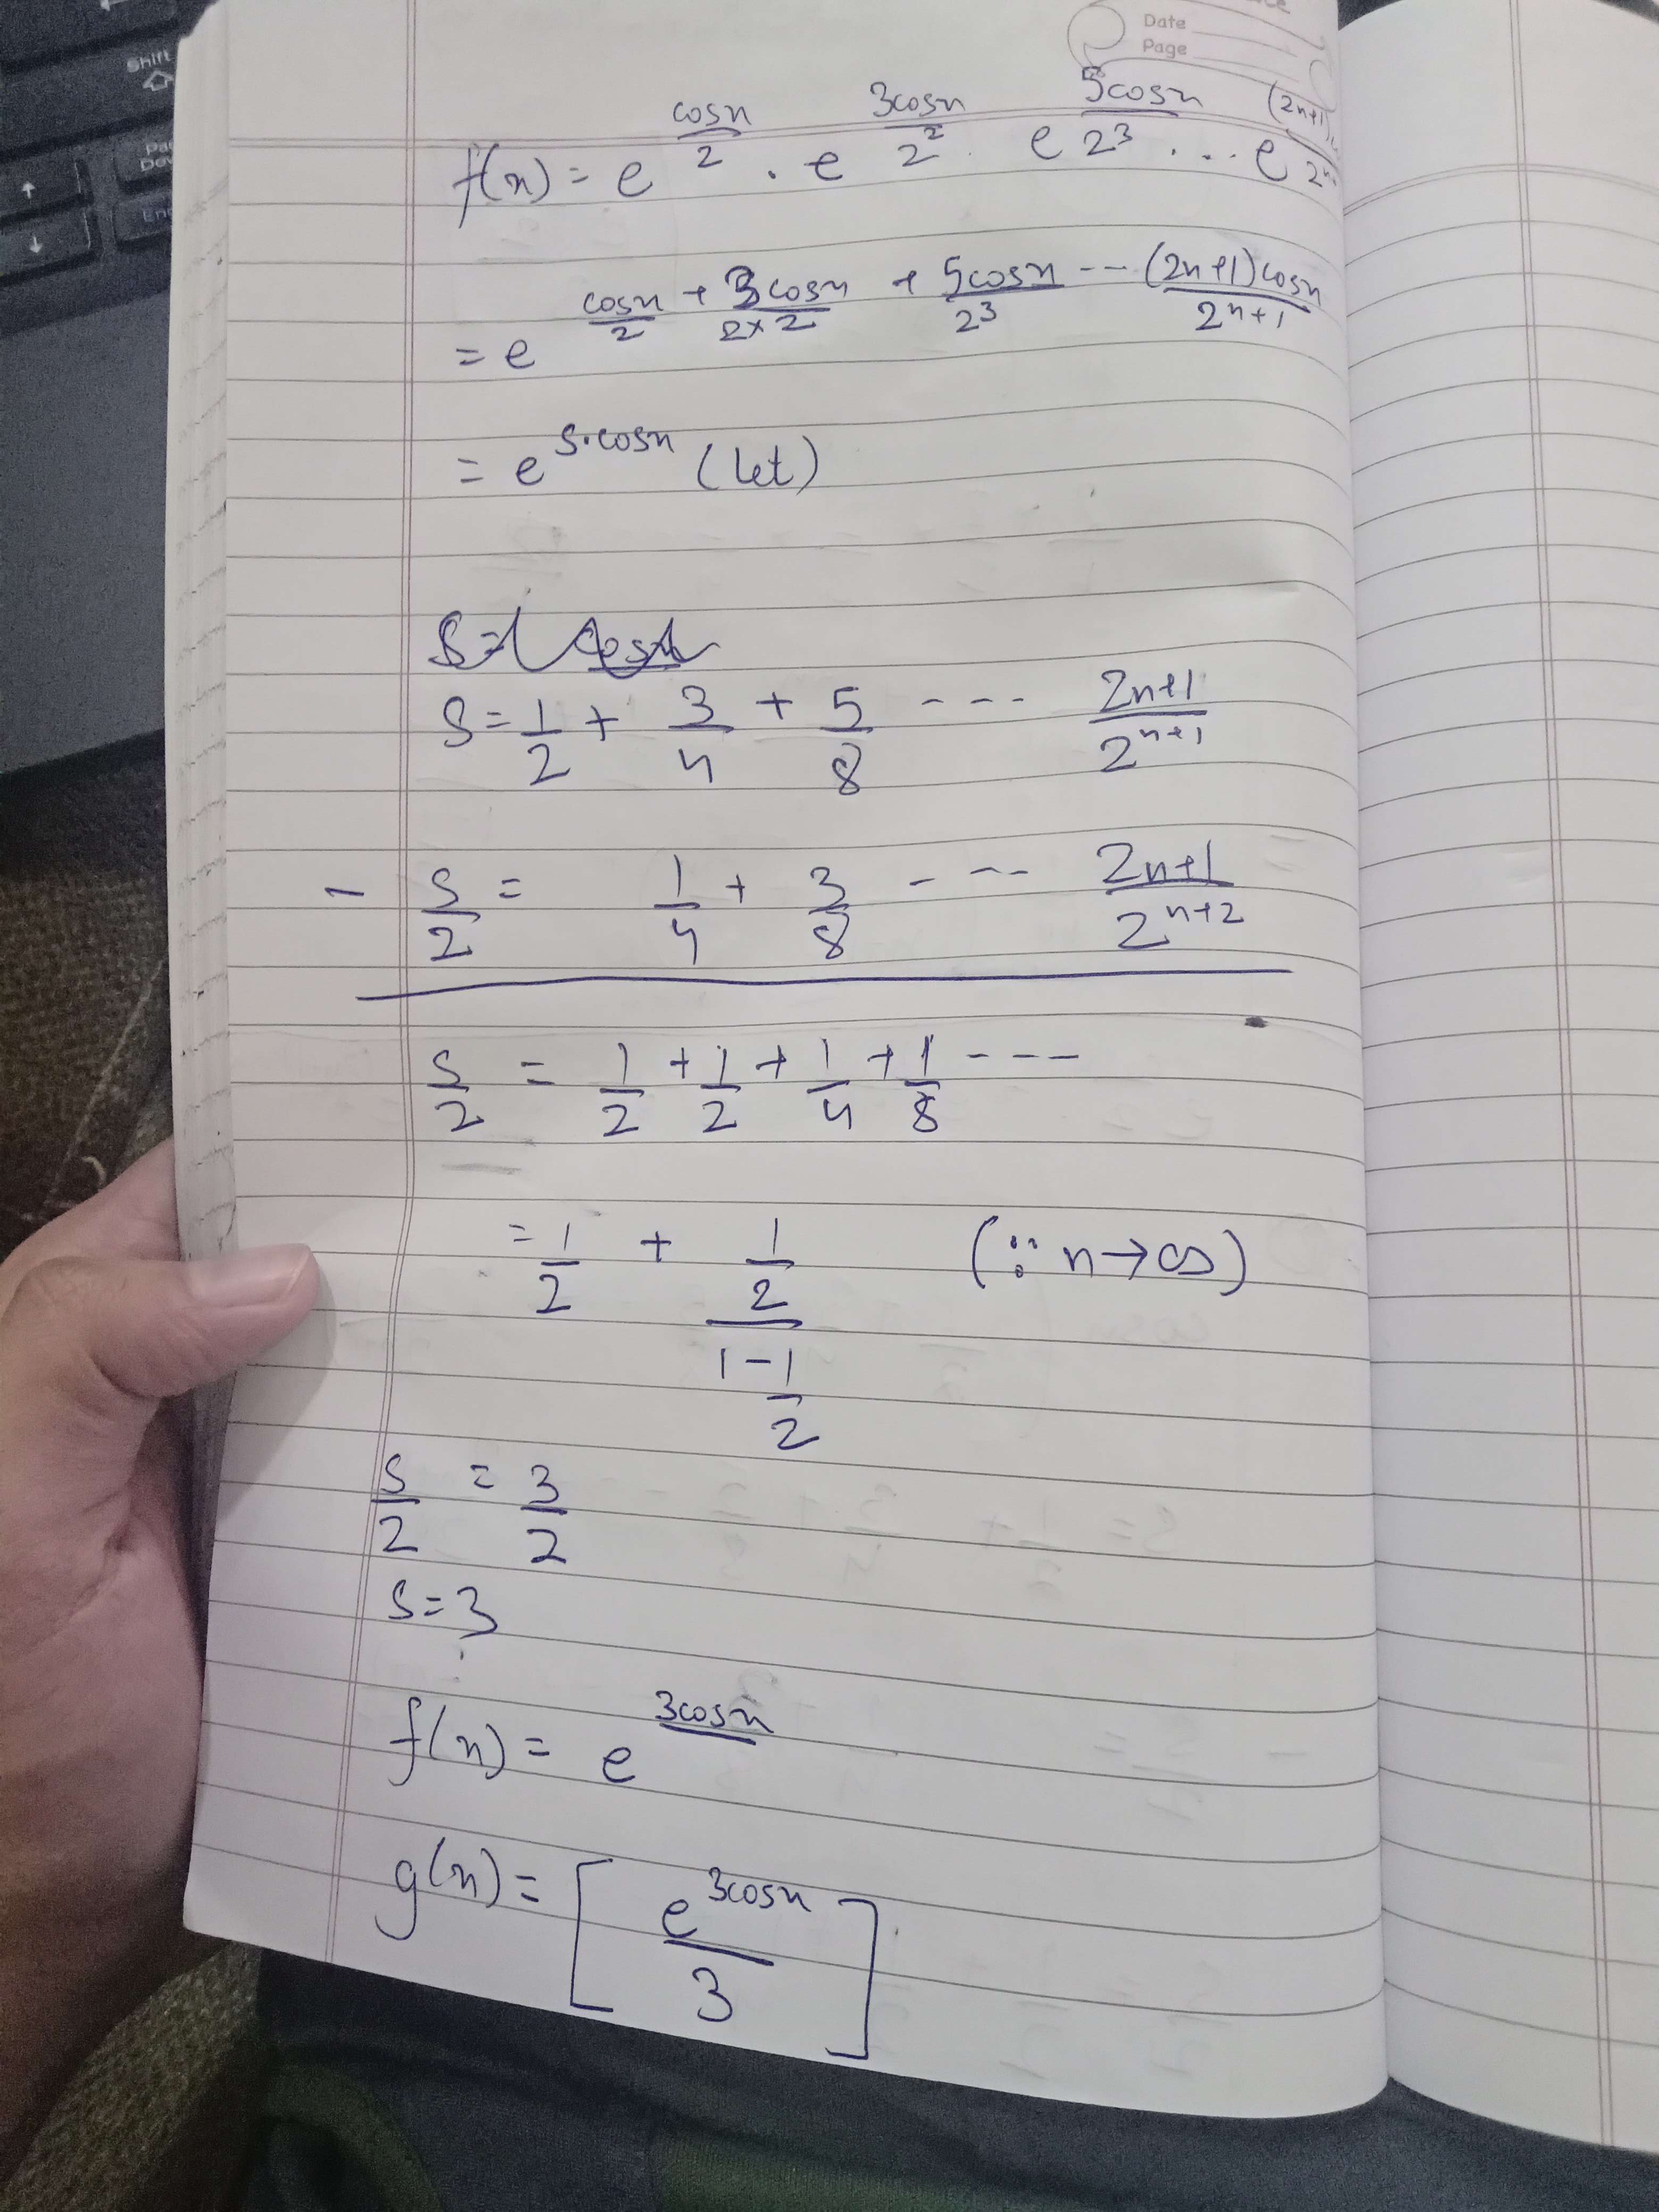 Shift
Date
Page
f(x) = e^(cosx/2) . e^(3cosx/2^2) . e^(5cosx/2^3) . ... e^((2n+1)
= e^(cosx/2 + 3cosx/2×2 + 5cosx/2^3 --- (2n+1)cosx/2^(n+1))
= e^(S.cosx) (let)
S = 1/2 + 3/4 + 5/8 ---- (2n+1)/2^(n+1)
- S/2 = 1/4 + 3/8 ---- (2n+1)/2^(n+2)
S/2 = 1/2 + 1/2 + 1/4 + 1/8 ----
= 1/2 + (1/2)/(1-1/2) (∵ n→∞)
S/2 = 3/2
S=3
f(x) = e^(3cosx)
g(x) = [e^(3cosx)/3]